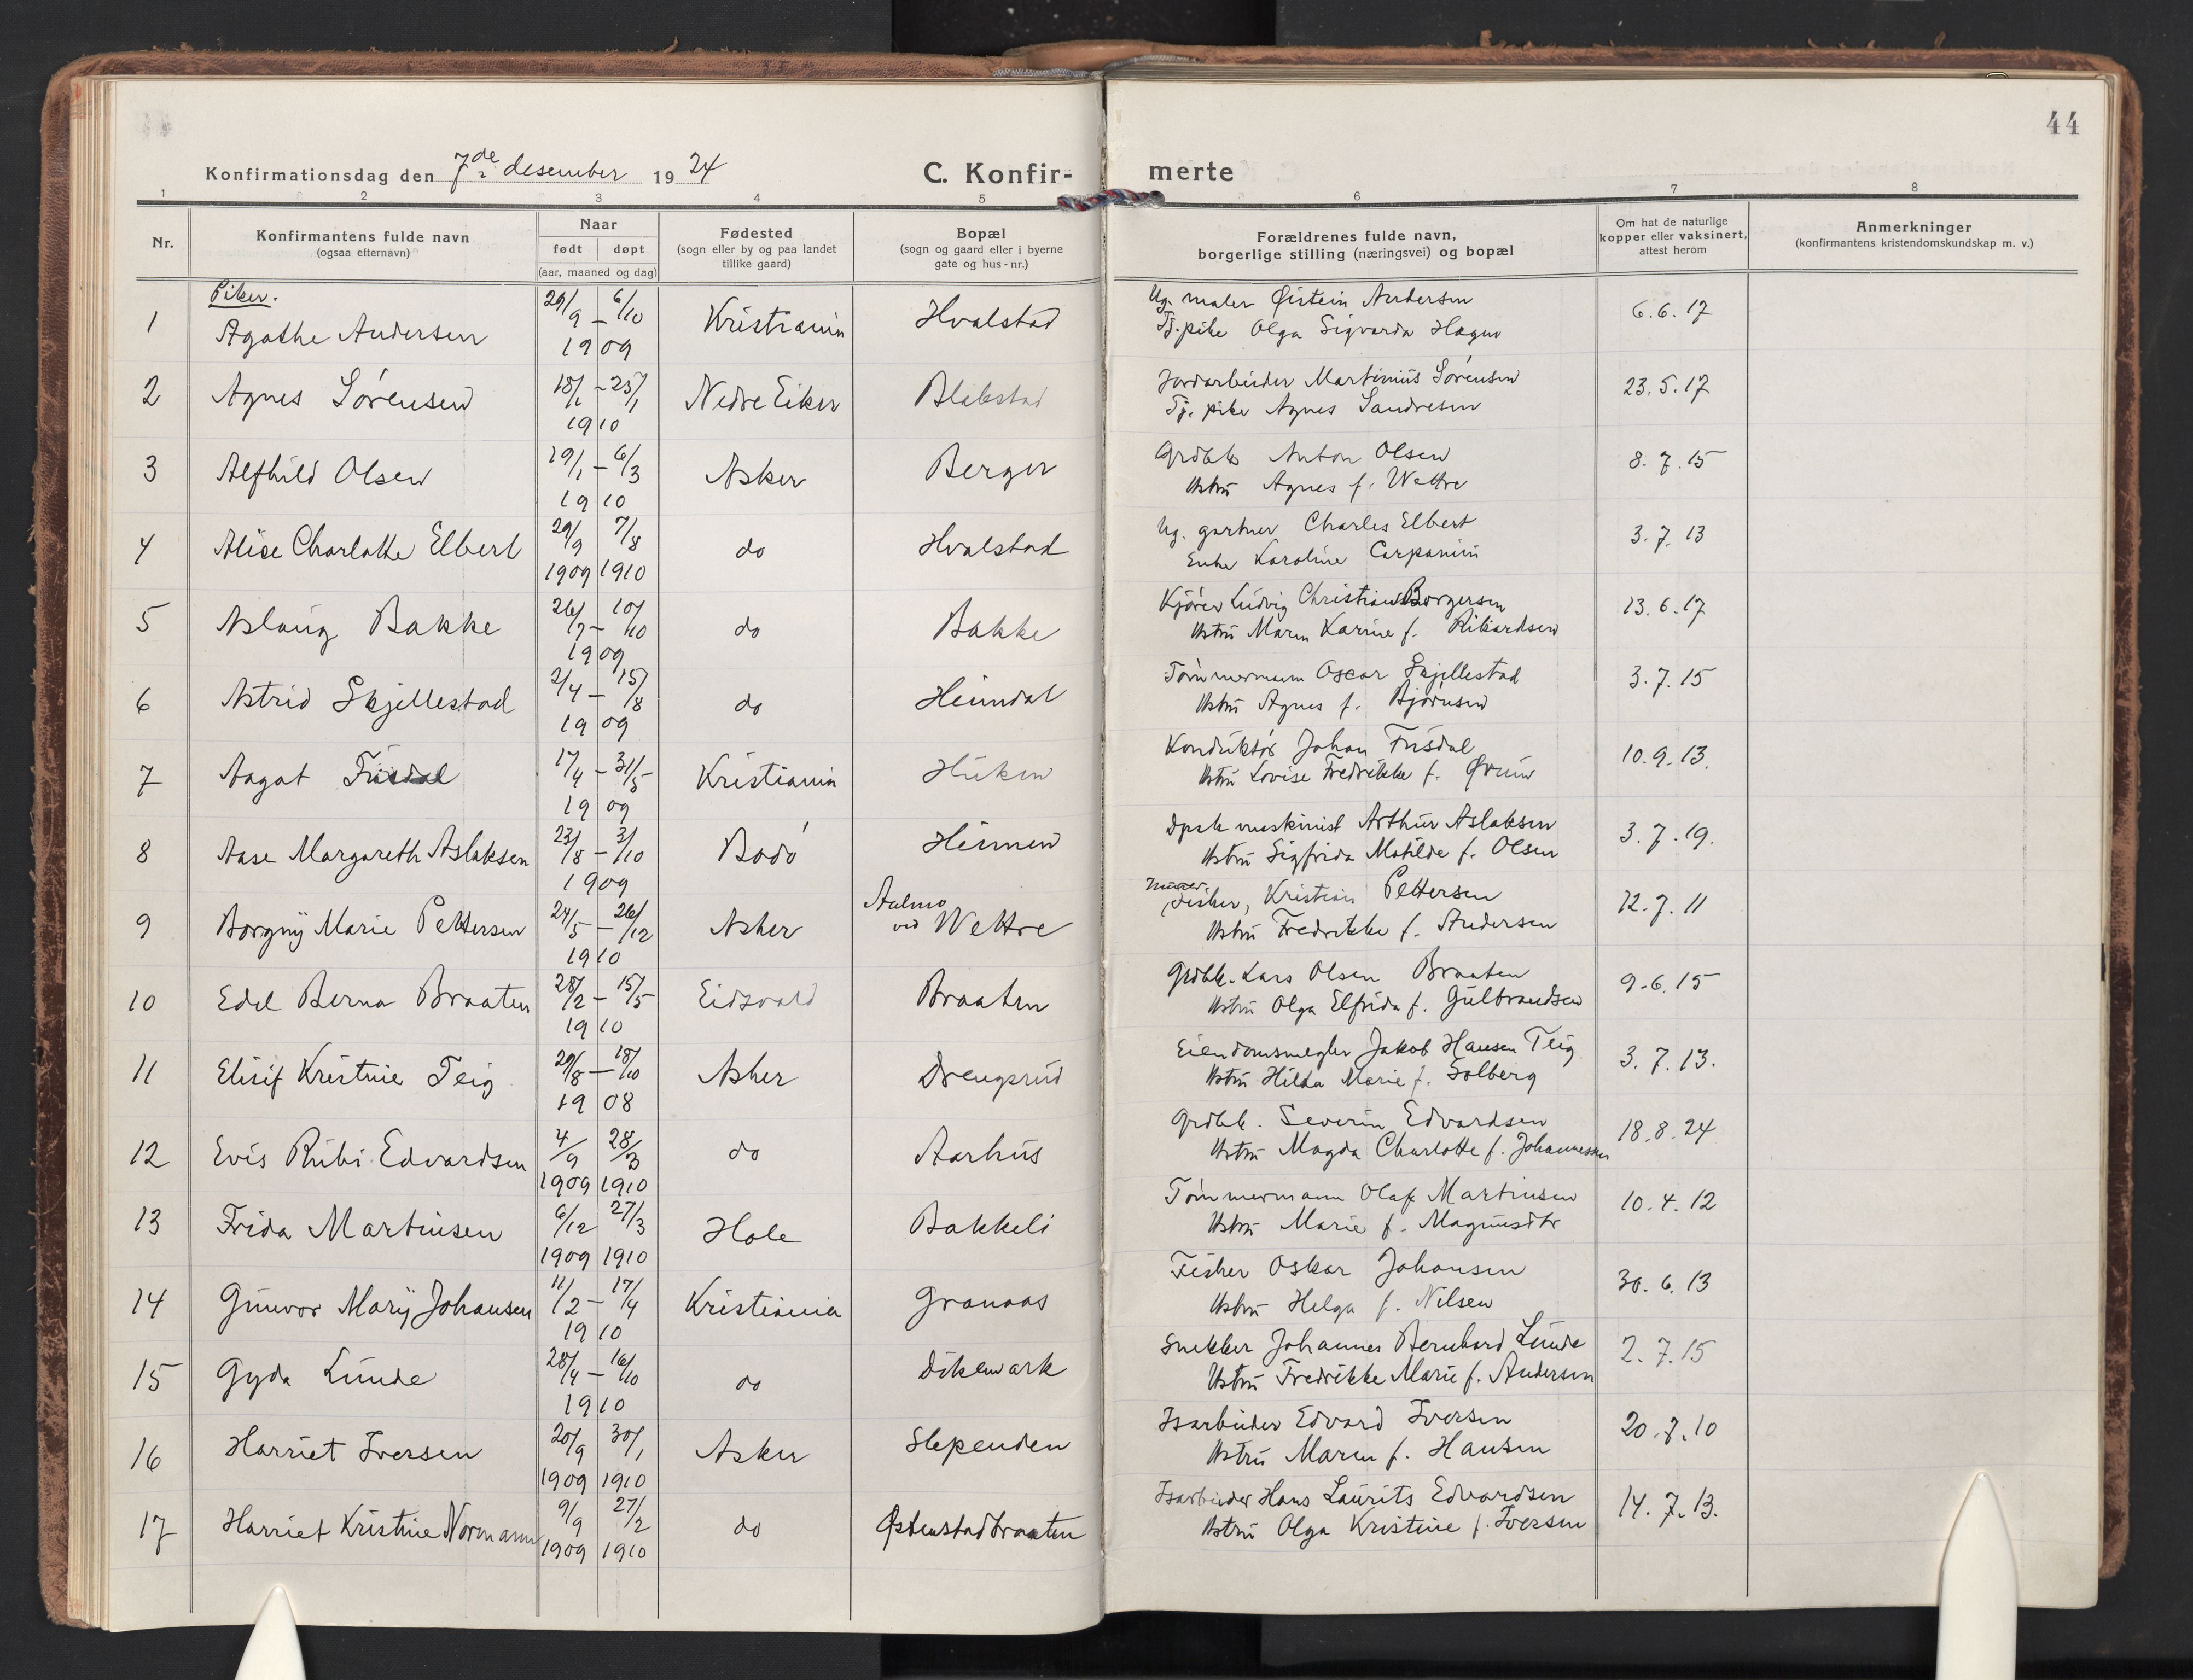 44
Konfirmationsdag den 7de desember 1924 C. Konfirmerte
1 2 3 4 5 6 7 8
Nr.
Konfirmantens fulde navn
(ogsaa efternavn)
Naar
født døpt
(aar, maaned og dag)
Fødested
(sogn eller by og paa landet
tillike gaard)
Bopæl
(sogn og gaard eller i byerne
gate og hus-nr.)
Forældrenes fulde navn,
borgerlige stilling (næringsvei) og bopæl
Om hat de naturlige
kopper eller vaksinert,
attest herom
Anmerkninger
(konfirmantens kristendomskundskap m. v.)
Piker.
1 Agathe Andersen 29/9 – 6/10 1909 Kristiania Hvalstad
Ug. maler Øistein Andersen
Tj. pike Olga Sigvarda Hagen
6.6.17
2 Agnes Sørensen 18/1 – 25/1 1910 Nedre Eiker Blakstad
Jordarbeider Martinius Sørensen
Tj. pike Agnes Sandresen
23.5.17
3 Alfhild Olsen 19/1 – 6/3 1910 Asker Berger
Grdbk Anton Olsen
Hstru Agnes f. Wettre
8.7.15
4 Alice Charlotte Elbert 29/9 1909 7/8 1910 do Hvalstad
Ug. gartner Charles Elbert
Enke Karoline
3.7.13
5 Aslaug Bakke 26/7 – 10/10 1909 do Bakke
Kjører Ludvig Christian Borgersen
Hstru Maren Karine f. Rikardsen
13.6.17
6 Astrid Skjellestad 2/4 – 15/8 1909 do Heimdal
Tømmermann Oscar Skjellestad
Hstru Agnes f. Bjørnsen
3.7.15
7 Aagot Fusdal 17/4 – 31/5 1909 Kristiania Huken
Konduktør Johan Fusdal
Hstru Lovise Fredrikke f. Ørum
10.9.13.
8 Aase Margareth Aslaksen 23/8 – 3/10 1909 Bodø Heimen
Dpsk maskinist Arthur Aslaksen
Hstru Sigfrida Matilde f. Olsen
3.7.19.
9 Borgny Marie Pettersen 24/5 – 26/12 1910 Asker Aalmo ved Wettre
Murer
Fisker, Kristian Pettersen
Hstru Fredrikke f. Andersen
12.7.11
10 Edel Berna Braaten 28/2 – 15/5 1910 Eidsvold Braaten
Grdbk. Lars Olsen Braaten
Hstru Olga Elfrida f. Gulbrandsen
9.6.15
11 Elisif Kristine Teig 29/8 – 18/10 1908 Asker Drengsrud
Eiendomsmegler Jakob Hansen Teig
Hstru Hilda Marie f. Solberg
3.7.13.
12 Evis Rubi Edvardsen 4/9 1909 28/3 1910 do Aarhus
Grdbk. Severin Edvardsen
Hstru Magda Charlotte f. Johannessen
18.8.24
13 Frida Martinsen 6/12 1909 27/3 1910 Hole Bakkeli
Tømmermann Olaf Martinsen
Hstru Marie f. Magnusdtr
10.4.12
14 Gunvor Mary Johansen 11/2 – 17/4 1910 Kristiania Granaas
Fisker Oskar Johansen
Hstru Helga f. Nilsen
30.6.13
15 Gyda Lunde 28/4 – 16/10 1910 do Dikemark
Snekker Johannes Bernhard Lunde
Hstru Fredrikke Marie f. Andersen
2.7.15
16 Harriet Iversen 20/9 1909 30/1 1910 Asker Slependen
Isarbeider Edvard Iversen
Hstru Maren f. Hansen
20.7.10
17 Harriet Kristine Normann 9/9 1909 27/2 1910 do Østenstadbraaten
Isarbeider Hans Laurits Edvardsen
Hstru Olga Kristine f. Iversen
14.7.13.